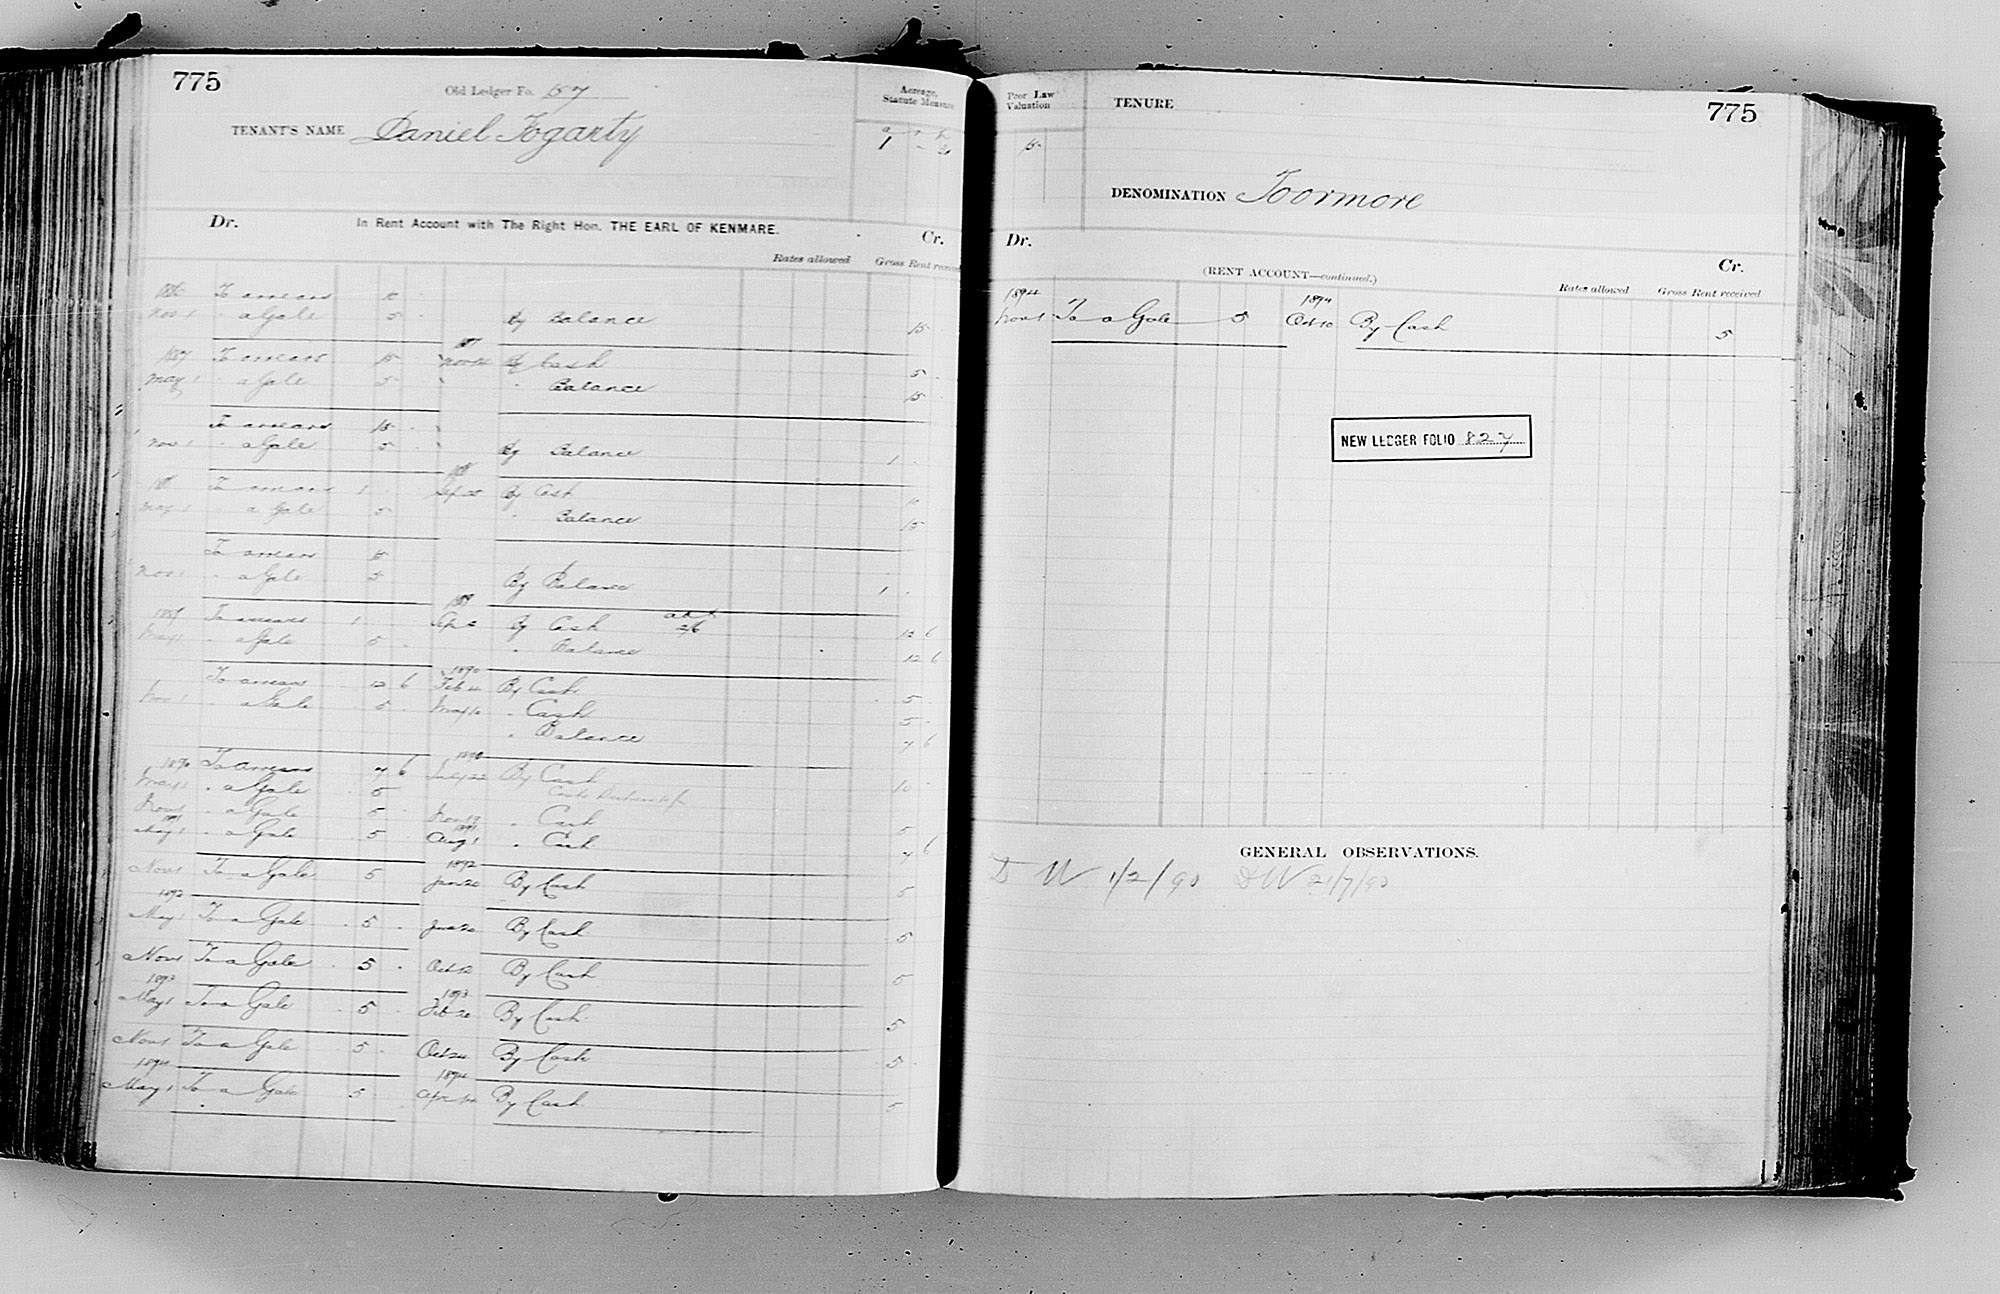 775
Old Ledger Fo. 57
TENANT'S NAME Daniel Fogarty
Acreage, Statute Measure
a r p
1 -
Dr. In Rent Account with The Right Hon. THE EARL OF KENMARE. Cr.
Rates allowed Gross Rent received
1886 To arrears
Nov 1 " a Gale 5 By Balance 15
1887 To arrears 15 By Cash 5
May 1 " a Gale 5 " Balance 15
To arrears 15
Nov 1 " a Gale 5 By Balance 1
To arrears 1 By Cash
May 1 " a Gale 5 " Balance 15
To arrears 15
Nov 1 " a Gale 5 By Balance 1
1889
1889 To arrears 1 By Cash 12 6
May 1 " a Gale 5 " Balance 12 6
1890
To arrears 12 6 Feb By Cash 5
Nov 1 " a Gale 5 May " Cash 5
" Balance 7 6
1890 1890
To arrears 7 6 July 22 By Cash 10
May 1 " a Gale 5
Nov 1 " a Gale 5 Nov " Cash 5
1891 1891
May 1 " a Gale 5 Aug 1 " Cash 7 6
1892
Nov 1 To a Gale 5 Jan 20 By Cash 5
1892
May 1 To a Gale 5 Jun 20 By Cash 5
Nov 1 To a Gale 5 Oct 12 By Cash 5
1893 1893
May 1 To a Gale 5 Feb 20 By Cash 5
Nov 1 To a Gale 5 Oct 24 By Cash 5
1894 1894
May 1 To a Gale 5 Apr By Cash 5
Poor Law Valuation
15
TENURE
775
DENOMINATION Toormore
Dr. (RENT ACCOUNT—continued.) Cr.
Rates allowed Gross Rent received
1894 1894
Nov 1 To a Gale 5 Oct 10 By Cash 5
NEW LEDGER FOLIO 827
GENERAL OBSERVATIONS.
D W 1/2/90 DW 21/7/90